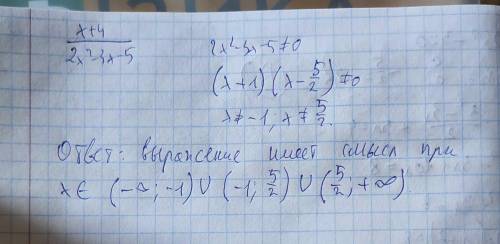 x+4
2x²-3x-5
2x²-3x-5≠0
(x+1)(x-5/2)≠0
x≠-1, x≠5/2.
Ответ: выражение имеет смысл при
x∈ (-∞; -1)∪(-1; 5/2)∪(5/2; +∞)